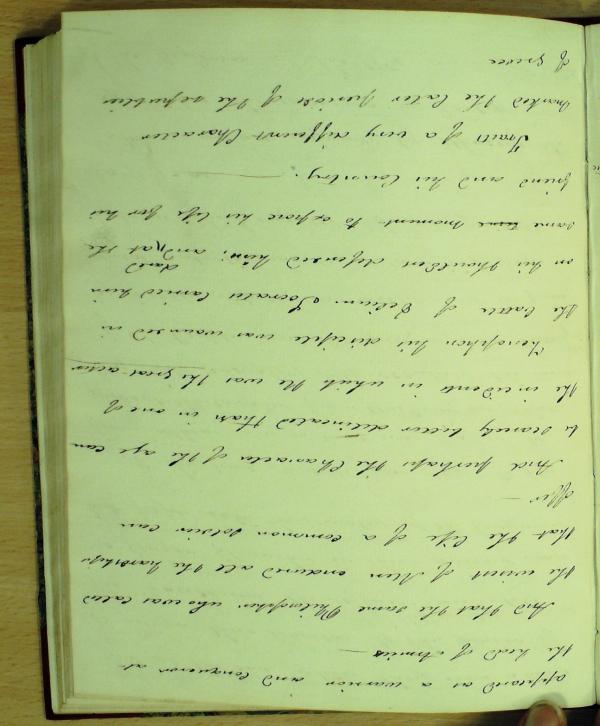 appeard as a warrior and Conqueror at
the head of Armies —
And that the same Philosopher who was called
the wisest of Men endured all the hardships
that the life of a common Soldier can
offer —
And perhaps the Character of the age can
be scarcely better delineated than in one of
the incidents in which He was the great actor
Xenophon his disciple was wounded in
the battle of Delium Socrates carried him
on his shoulders defended him; and dared at the
same moment to expose his life for his
friend and his Country. —
Traits of a very different Character
marked the later periods of the republics
of Greece